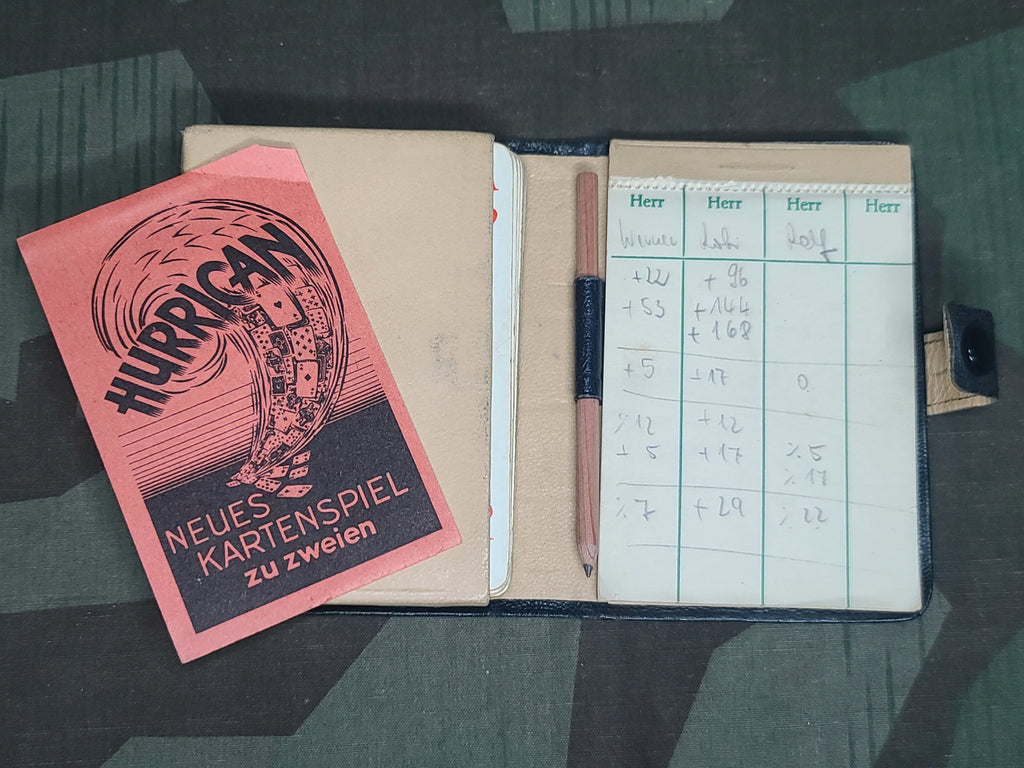 HURRICAN
NEUES
KARTENSPIEL
zu zweien
Herr Herr Herr Herr
Werner Rolf
+22 + 96
+53 + 144
+ 168
+5 +17 0
⁒12 +12
+ 5 +17 ⁒5
⁒17
⁒7 +29 ⁒22